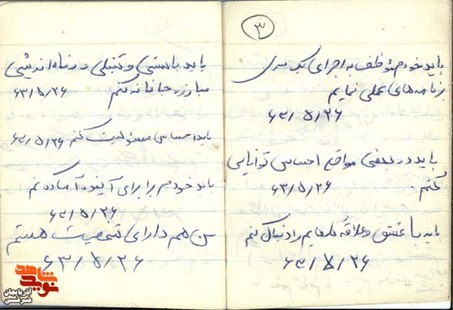 ۳
باید خودم موظف به اجرای یک سری
برنامه‌های عملی نمایم
۶۳/۵/۲۶
باید در بعضی مواقع احساس توانایی
کنم. ۶۳/۵/۲۶
باید با عشق و علاقه کارهایم را دنبال کنم
۶۳/۵/۲۶
باید با سستی و تنبلی و رفاه اندیشی
مبارزه جانانه کنم
۶۳/۵/۲۶
باید احساس مسئولیت کنم ۶۳/۵/۲۶
باید خودم را برای آینده آماده کنم
۶۳/۵/۲۶
من هم دارای شخصیت هستم
۶۳/۵/۲۶
نوید شاهد
آذربایجان شرقی